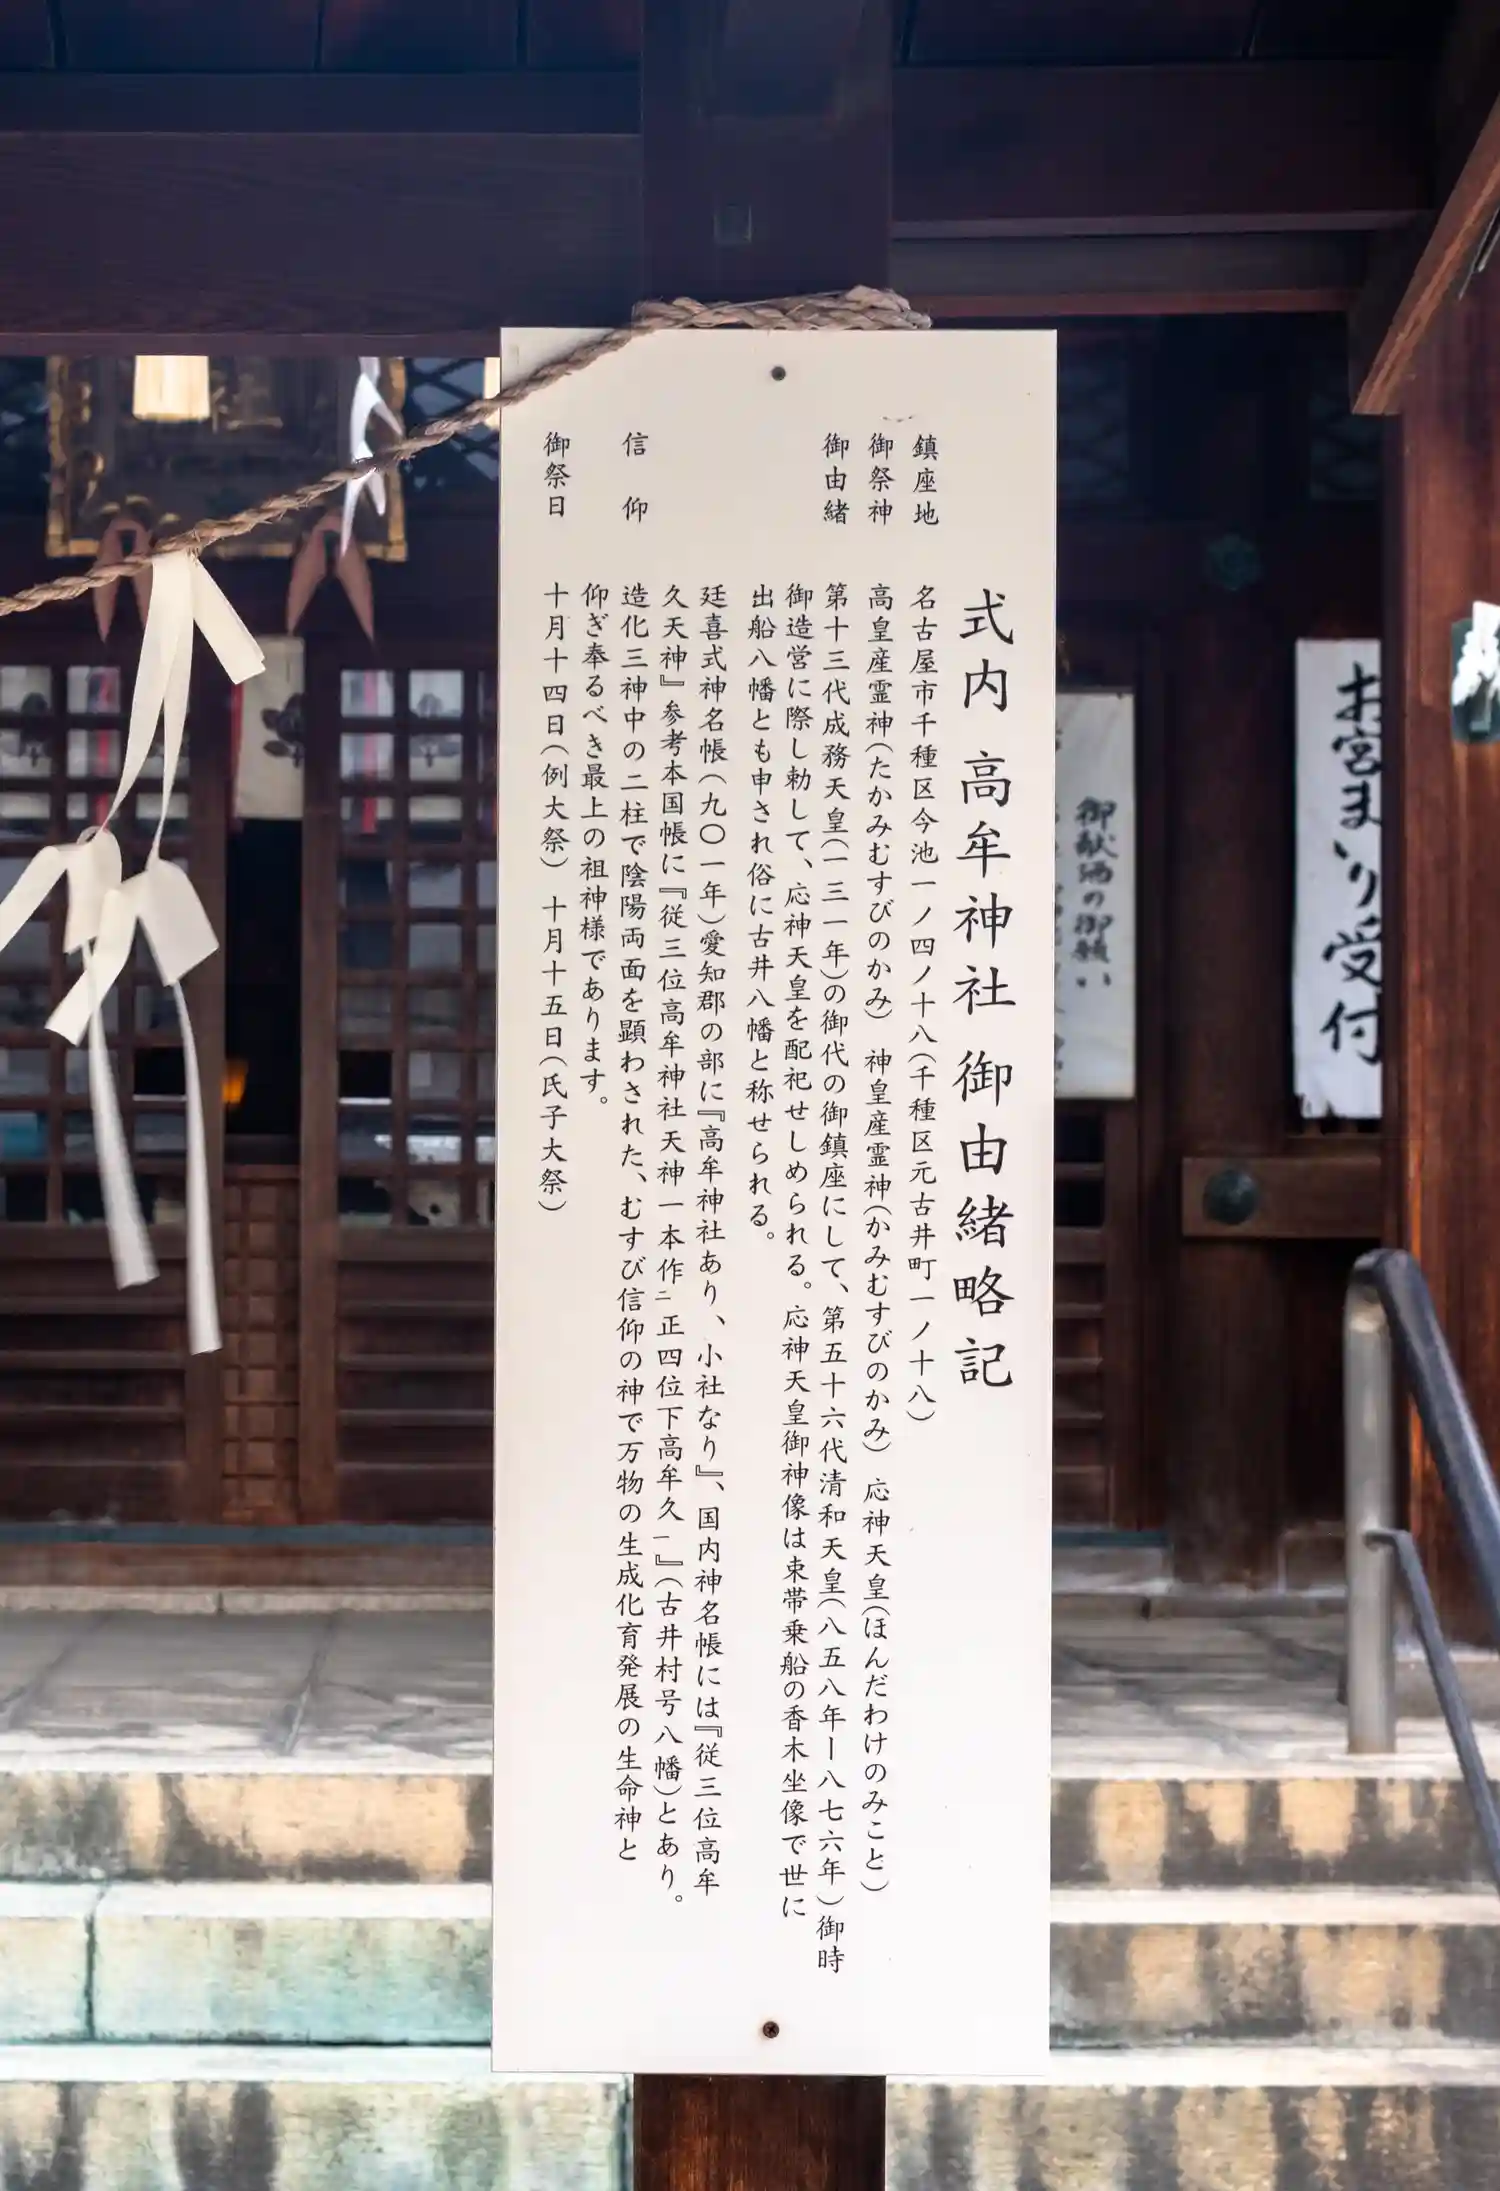 式内 高牟神社 御由緒略記
鎮座地 名古屋市千種区今池一ノ四ノ十八(千種区元古井町一ノ十八)
御祭神 高皇産霊神(たかみむすびのかみ) 神皇産霊神(かみむすびのかみ) 応神天皇(ほんだわけのみこと)
御由緒 第十三代成務天皇(一三一年)の御代の御鎮座にして、第五十六代清和天皇(八五八年ー八七六年)御時
御造営に際し勅して、応神天皇を配祀せしめられる。応神天皇御神像は束帯乗船の香木坐像で世に
出船八幡とも申され俗に古井八幡と称せられる。
廷喜式神名帳(九〇一年)愛知郡の部に『高牟神社あり、小社なり』、国内神名帳には『従三位高牟
久天神』参考本国帳に『従三位高牟神社天神一本作ニ正四位下高牟久一』(古井村号八幡)とあり。
信仰 造化三神中の二柱で陰陽両面を顕わされた、むすび信仰の神で万物の生成化育発展の生命神と
仰ぎ奉るべき最上の祖神様であります。
御祭日 十月十四日(例大祭) 十月十五日(氏子大祭)
お宮まいり受付
御献酒の御願い